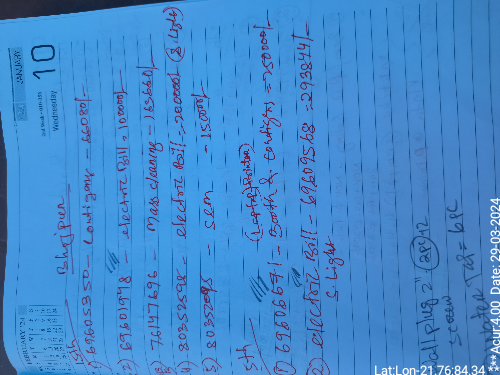 JANUARY
10
Wednesday
FEBRUARY '24
Bhojpur
15th
1) 69605350 - Contigancy - 66080/-
2) 69601978 - electric Bill = 100000/-
3) 76147696 - mass cleaning - 163660/-
4) 80352598 - electric Bill = 200000/ (S. Light)
5) 80352095 - sem - 15000/-
5th
(Laptop, Printer)
1) 69606671 - Booth & Contigns = 250000/-
2) electric Bill - 69609568 = 293844/-
S. Light
wall plug 2" 
screw
Water Tax = 
Lat:Lon-21.76:84.34
***Acur:4.00 Date: 29-03-2024